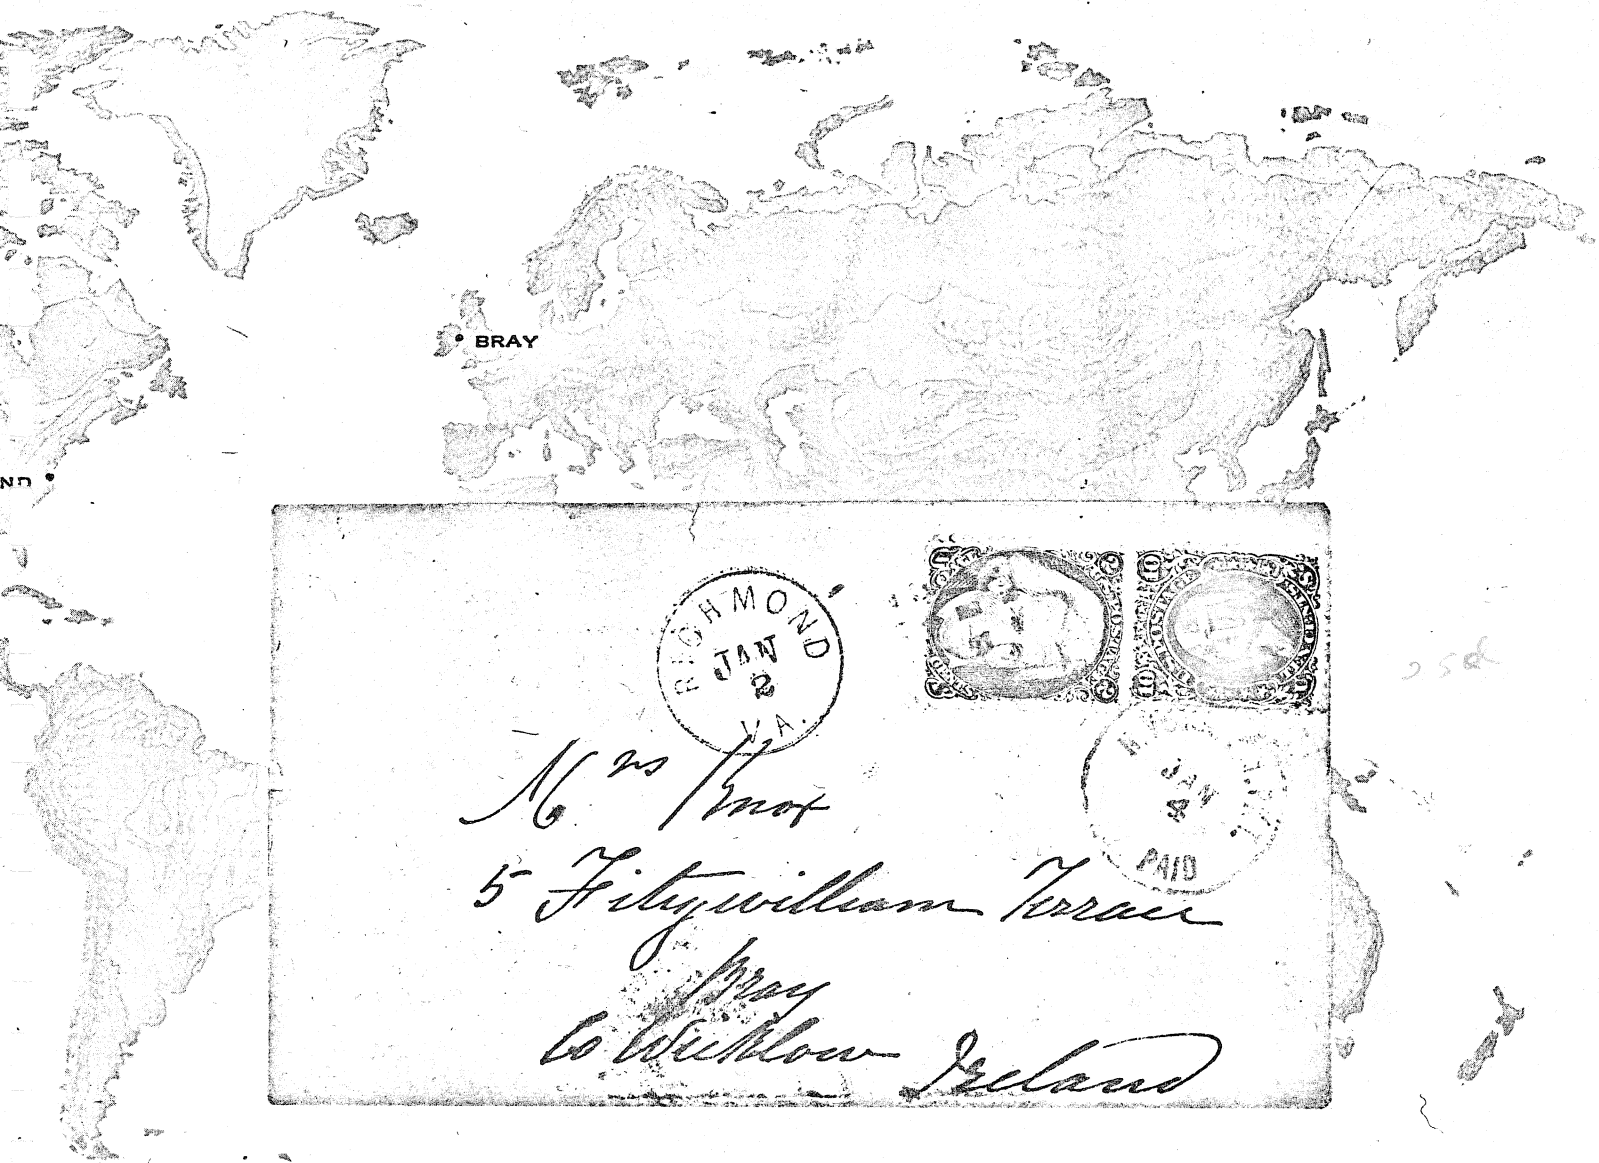 BRAY
ND
RICHMOND
JAN
2
VA.
Mrs Knox
JAN
4
PAID
5 Fitzwilliam Terrace
Bray
Co Wicklow Ireland